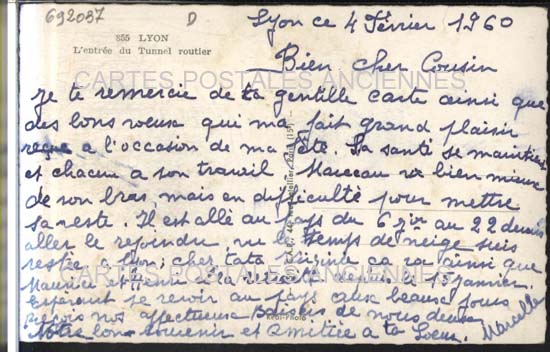 692037
D
855 LYON
L'entrée du Tunnel routier
Lyon ce 4 Février 1960
Bien cher Cousin
CARTES POSTALES ANCIENNES
Je te remercie de ta gentille carte ainsi que
des bons voeux qui ma fait grand plaisir
reçue a l'occasion de ma fête. La santé se maintien
et chacun a son travail, Marceau va bien mieux
de son bras, mais en difficulté pour mettre
sa veste. Il est allé au pays du 6 au 22 devais
aller le rejoindre vu le temps de neige suis
restée a Lyon; cher tata ca va ainsi que
CARTES POSTALES ANCIENNES
Maurice et Henri a la retraite depuis le 15 janvier.
Esperant se revoir au pays aux beaux jours
reçois nos affectueux Baisers de nous deux
Real-Photo
Notre bon souvenir et Amitiée a ta Soeur. Marcelle